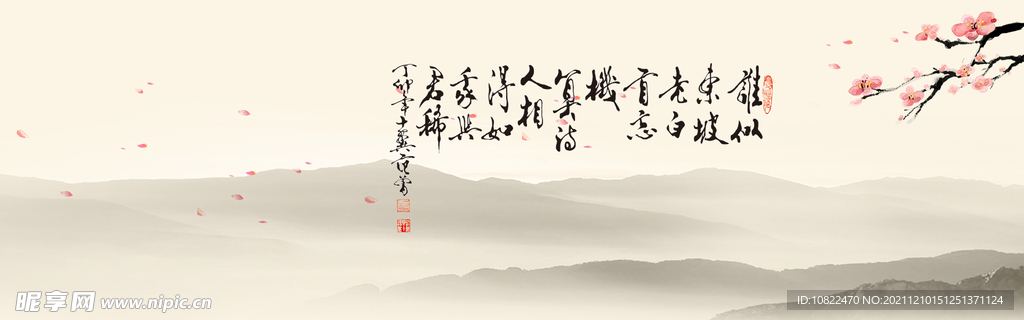 誰似
東坡
老白
首忘
機
算詩
人相
得如
我與
君稀
丁卯年十翼范曾
昵享网 www.nipic.cn
ID:10822470 NO:20211210151251371124